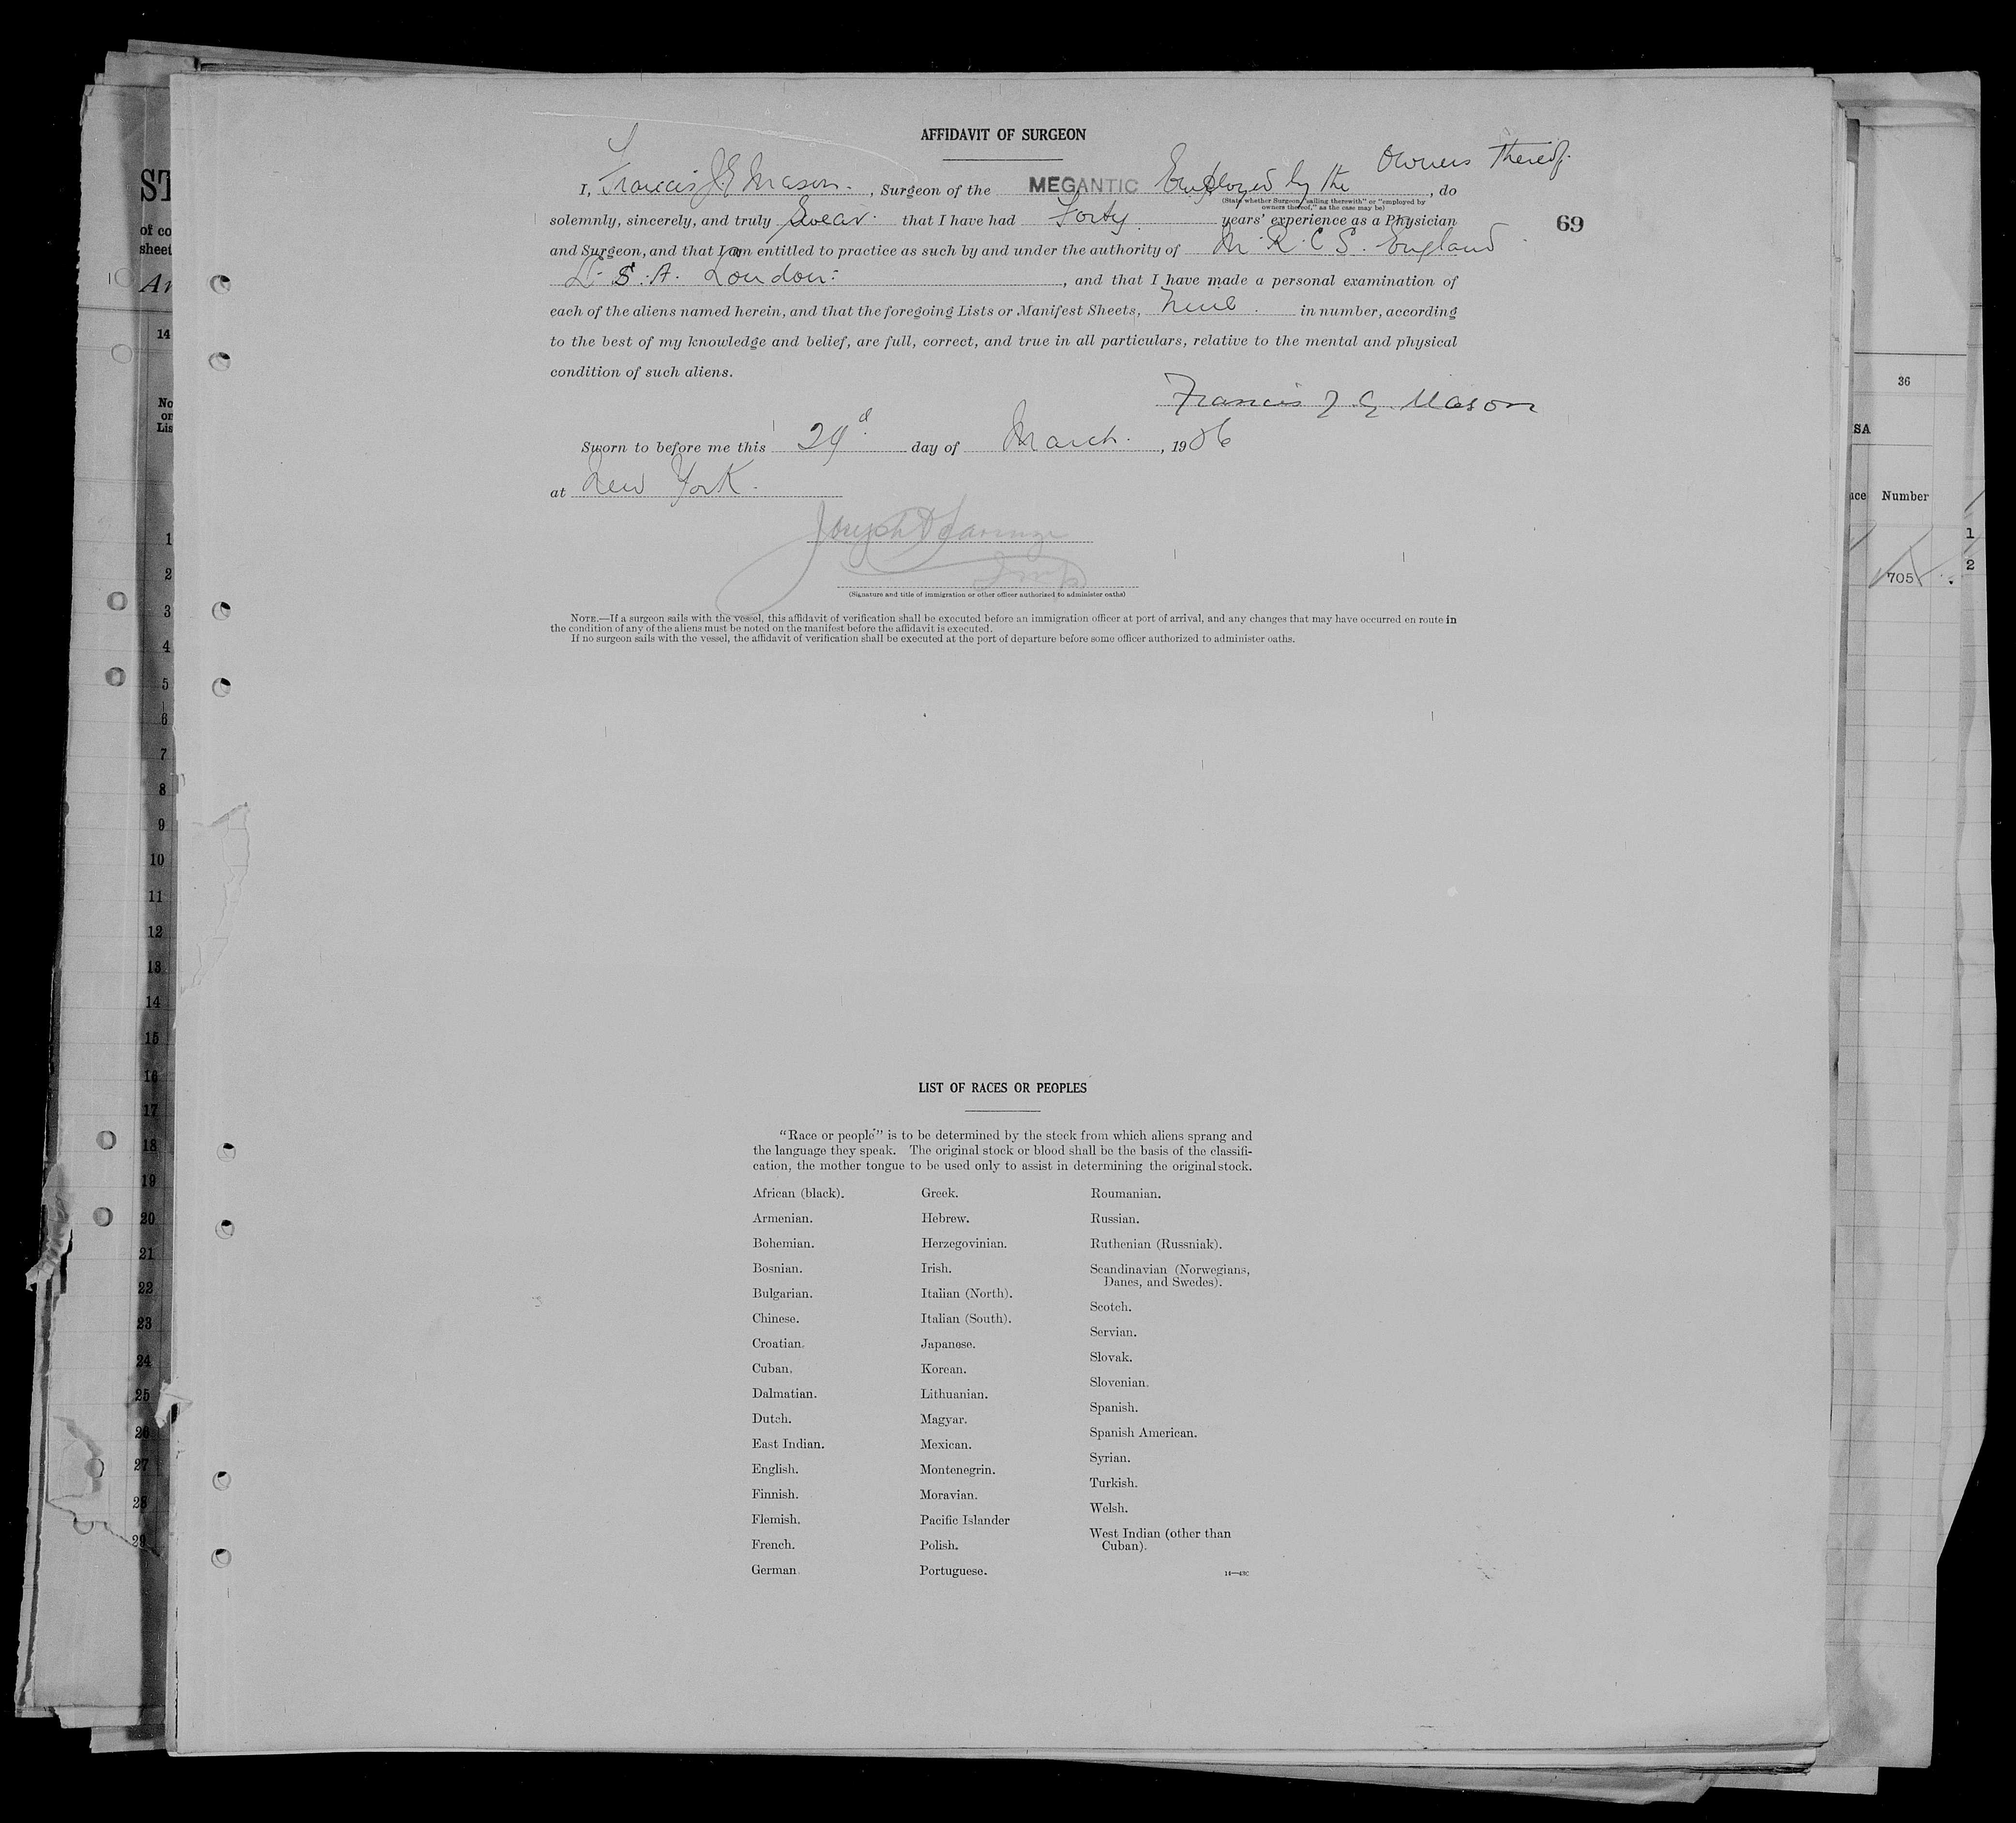 AFFIDAVIT OF SURGEON
I, Francis J E Mason, Surgeon of the MEGANTIC Employed by the Owners thereof, do
(State whether Surgeon "sailing therewith" or "employed by
owners thereof," as the case may be)
solemnly, sincerely, and truly Swear that I have had Forty years' experience as a Physician
69
and Surgeon, and that I am entitled to practice as such by and under the authority of M.R.C.S. England
L.S.A. London, and that I have made a personal examination of
each of the aliens named herein, and that the foregoing Lists or Manifest Sheets, in number, according
to the best of my knowledge and belief, are full, correct, and true in all particulars, relative to the mental and physical
condition of such aliens.
Francis J E Mason
Sworn to before me this 29 day of March, 1906
at New York.
Joseph
(Signature and title of immigration or other officer authorized to administer oaths)
NOTE.—If a surgeon sails with the vessel, this affidavit of verification shall be executed before an immigration officer at port of arrival, and any changes that may have occurred en route in
the condition of any of the aliens must be noted on the manifest before the affidavit is executed.
If no surgeon sails with the vessel, the affidavit of verification shall be executed at the port of departure before some officer authorized to administer oaths.
LIST OF RACES OR PEOPLES
"Race or people" is to be determined by the stock from which aliens sprang and
the language they speak. The original stock or blood shall be the basis of the classifi-
cation, the mother tongue to be used only to assist in determining the original stock.
African (black).
Armenian.
Bohemian.
Bosnian.
Bulgarian.
Chinese.
Croatian.
Cuban.
Dalmatian.
Dutch.
East Indian.
English.
Finnish.
Flemish.
French.
German.
Greek.
Hebrew.
Herzegovinian.
Irish.
Italian (North).
Italian (South).
Japanese.
Korean.
Lithuanian.
Magyar.
Mexican.
Montenegrin.
Moravian.
Pacific Islander
Polish.
Portuguese.
Roumanian.
Russian.
Ruthenian (Russniak).
Scandinavian (Norwegians,
Danes, and Swedes).
Scotch.
Servian.
Slovak.
Slovenian.
Spanish.
Spanish American.
Syrian.
Turkish.
Welsh.
West Indian (other than
Cuban).
ST
of co
sheet
14
No
on
Lis
1
2
3
4
5
6
7
8
9
10
11
12
13
14
15
16
17
18
19
20
21
22
23
24
25
26
27
28
29
36
SA
Number
1
2
705